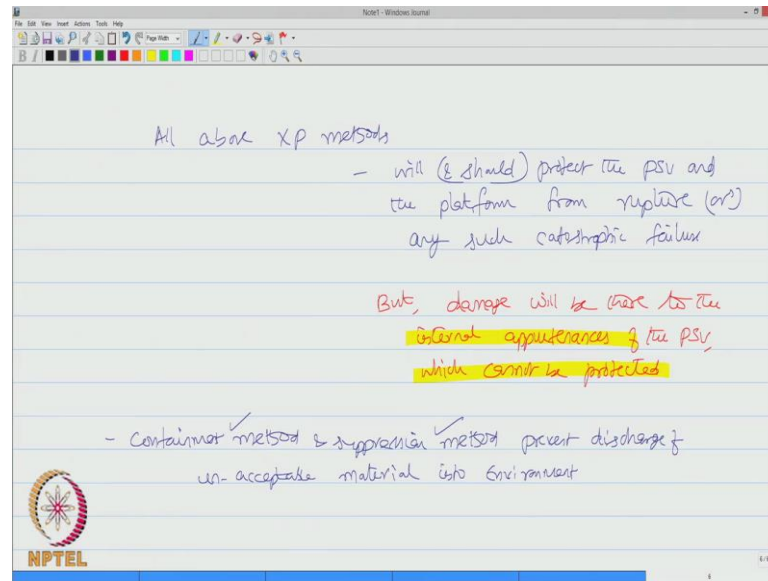 Note1 - Windows Journal
File Edit View Insert Actions Tools Help
Page Width
B I
All above XP methods
- will (& should) protect the PSV and
the platform from rupture (or)
any such catastrophic failure
But, damage will be there to the
internal appurtenances of the PSV,
which cannot be protected
- Containment method & suppression method prevent discharge of
un-acceptable material into Environment
NPTEL
6